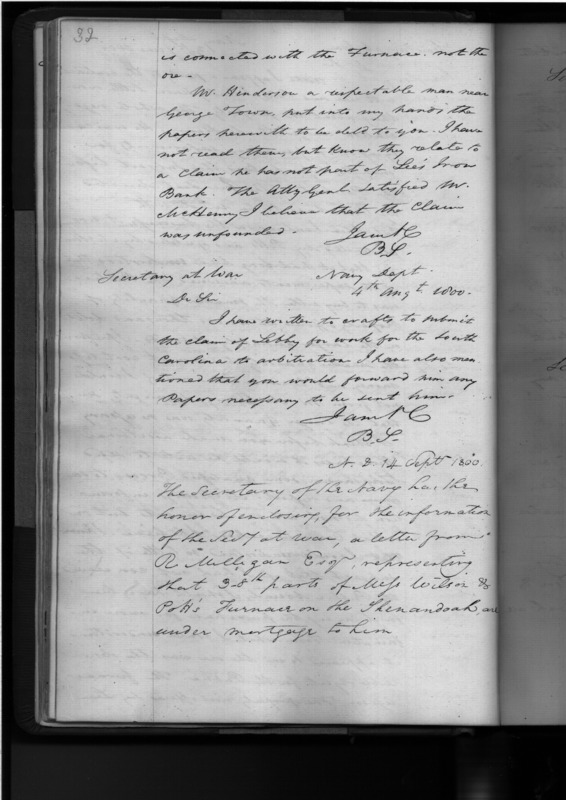 32
is connected with the Furnace. not the
ore -
Mr. Henderson a respectable man near
George Town, put into my hands the
papers herewith to be deld to you. I have
not read them, but know they relate to
a claim he has not part of Lee's Iron
Bank. The Atty Genl satisfied Mr.
McHenry I believe that the Claim
was unfounded -
I am &C
B. S.
Secretary at War
Navy Dept.
4th Augt. 1800.
Dr Sir
I have written to Crafts to submit
the claim of Libby for work for the South
Carolina to arbitration I have also men
tioned that you would forward him any
Papers necessary to be sent him.
I am &C
B. S.
N. D. 14 Sept 1800.
The Secretary of the Navy has the
honor of enclosing, for the information
of the Secy at war, a letter from
R Milligan Esqr, representing
that 3.8th parts of Mess Wilson &
Potts Furnace on the Shenandoah, are
under mortgage to him